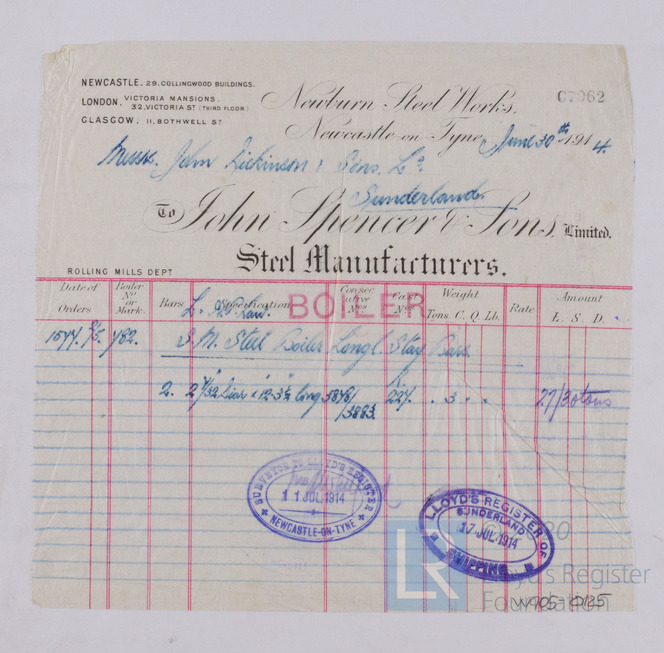 NEWCASTLE. 29. COLLINGWOOD BUILDINGS.
LONDON. VICTORIA MANSIONS.
32, VICTORIA ST (THIRD FLOOR)
GLASGOW. 11, BOTHWELL ST
Newburn Steel Works.
C7962
Newcastle-on-Tyne, June 30th 1914.
Messrs. John Dickinson & Sons. Ld
Sunderland.
To John Spencer & Sons, Limited.
Steel Manufacturers.
ROLLING MILLS DEPT
Date of Orders
Boiler No or Mark.
Bars.
Specification
Consecutive Nos
Cast No
Weight
Tons. C. Q. Lb.
Rate
Amount
L. S. D.
BOILER
782. S. M. Steel Boiler Longl. Stay Bars.
2. long 3878/ 3883. 227. 3 27/30 tons
SURVEYOR TO LLOYD'S REGISTER
11 JUL 1914
NEWCASTLE-ON-TYNE
LLOYD'S REGISTER OF
SUNDERLAND
17 JUL 1914
SHIPPING
LR
Lloyd's Register
Foundation
W905-0125